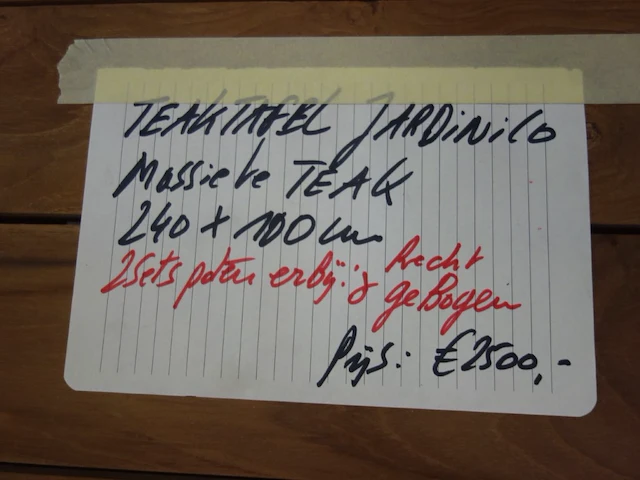 TEAKTAFEL JARDINICO
Massieve TEAK
240 x 100 cm
2 Sets poten erbij: Recht
& geBogen
Prijs: €2500,-